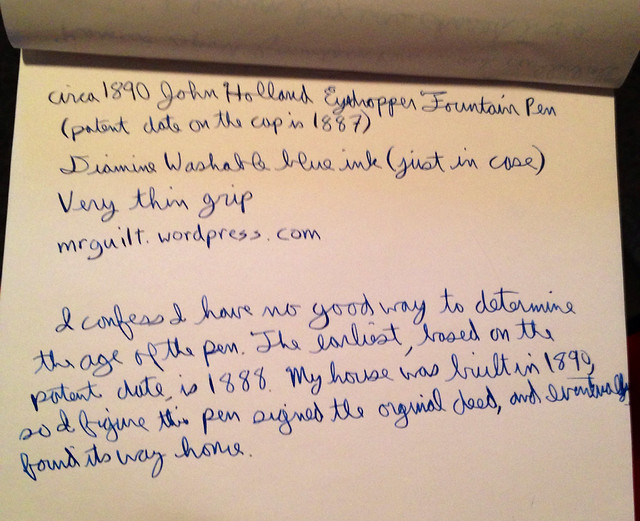 circa 1890 John Holland Eyedropper Fountain Pen
(patent date on the cap is 1887)
Diamine Washable blue ink (just in case)
Very thin grip
mrguilt.wordpress.com
I confess I have no good way to determine
the age of the pen. The earliest, based on the
patent date, is 1888. My house was built in 1890,
so I figure this pen signed the orginial deed, and eventually
found its way home.